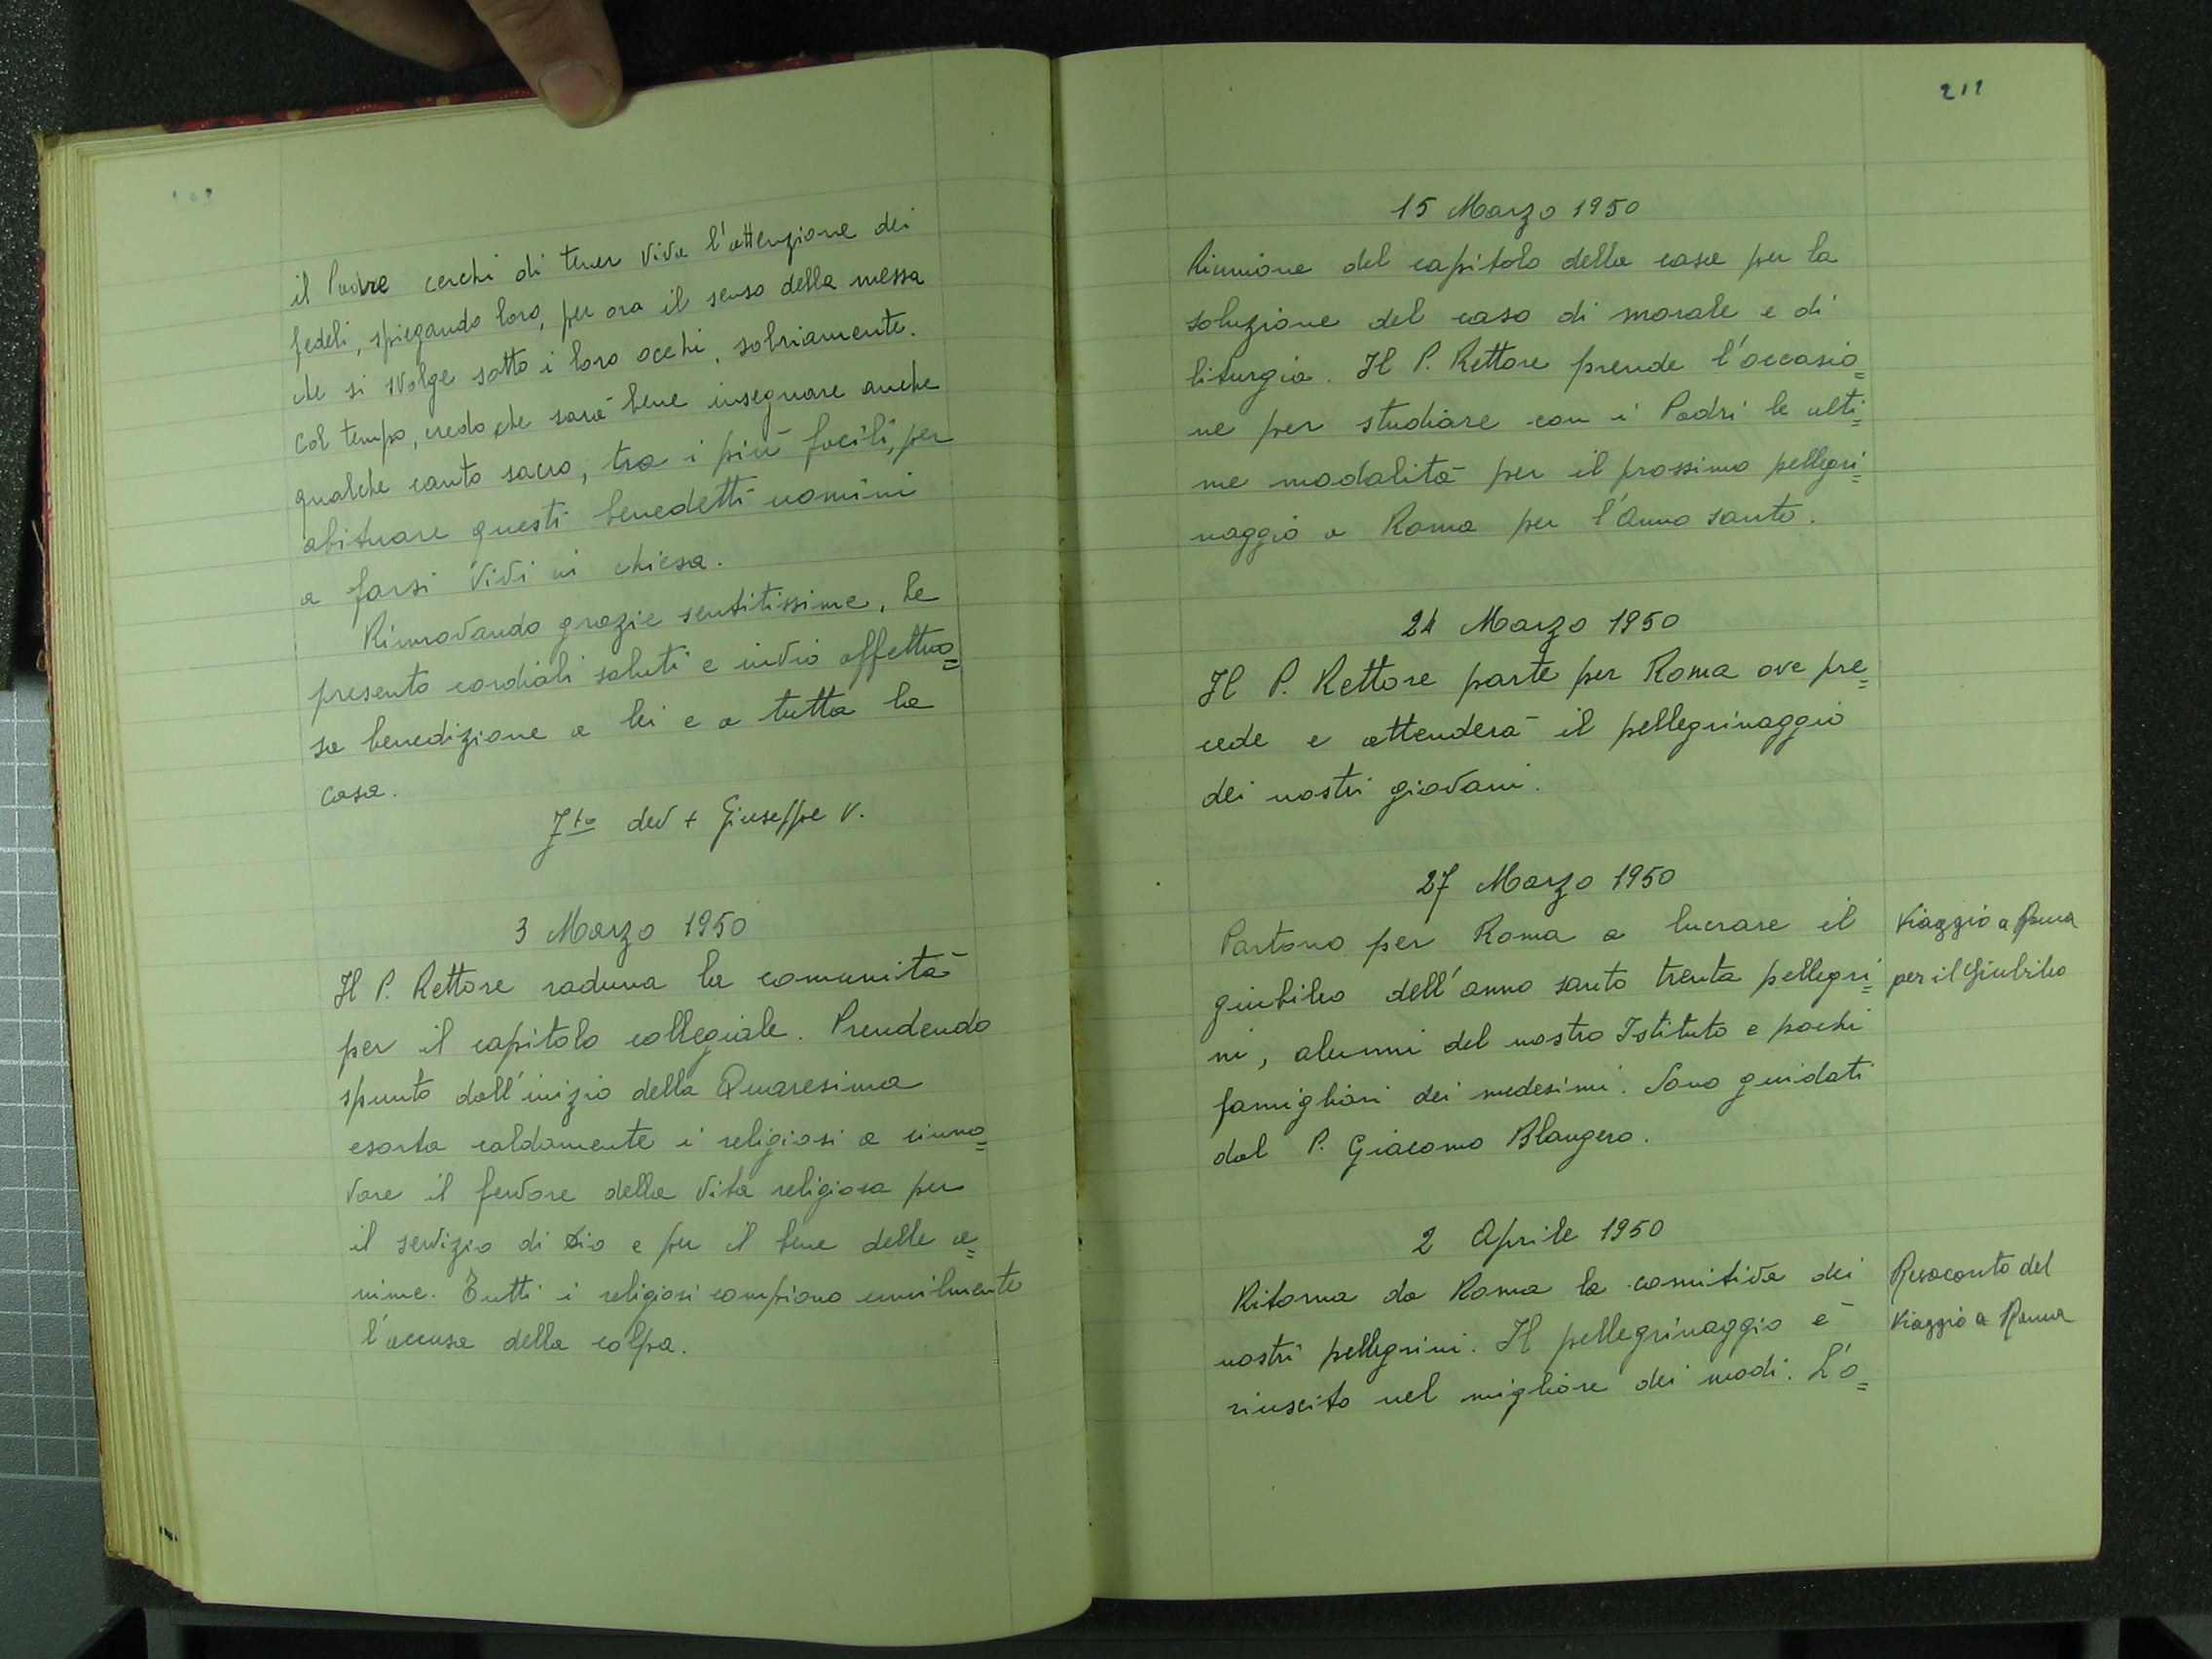 il Padre cerchi di tener viva l'attenzione dei
fedeli, spiegando loro, per ora il senso della messa
che si svolge sotto i loro occhi, sobriamente.
Col tempo, credo, che sarà bene insegnare anche
qualche canto sacro, tra i più facili, per
abituare questi benedetti uomini
a farsi vivi in chiesa.
Rinnovando grazie sentitissime, le
presento cordiali saluti e invio affettuo=
sa benedizione a lei e a tutta la
casa.
dev + Giuseppe V.
3 Marzo 1950
Il P. Rettore raduna la comunità
per il capitolo collegiale. Prendendo
spunto dall'inizio della Quaresima
esorta caldamente i religiosi a rinno=
vare il fervore della vita religiosa per
il servizio di Dio e per il bene delle a=
nime. Tutti i religiosi compiono umilmente
l'accusa della colpa.
211
15 Marzo 1950
Riunione del capitolo della casa per la
soluzione del caso di morale e di
liturgia. Il P. Rettore prende l'occasio=
ne per studiare con i Padri le ulti=
me modalità per il prossimo pellegri=
naggio a Roma per l'Anno santo.
24 Marzo 1950
Il P. Rettore parte per Roma ove pre=
cede e attenderà il pellegrinaggio
dei nostri giovani.
27 Marzo 1950
Partono per Roma a lucrare il
giubileo dell'anno santo trenta pellegri=
ni, alunni del nostro Istituto e pochi
famigliari dei medesimi. Sono guidati
dal P. Giacomo Blangero.
Viaggio a Roma
per il Giubileo
2 Aprile 1950
Ritorna da Roma la comitiva dei
nostri pellegrini. Il pellegrinaggio è
riuscito nel migliore dei modi. L'o=
Resoconto del
viaggio a Roma